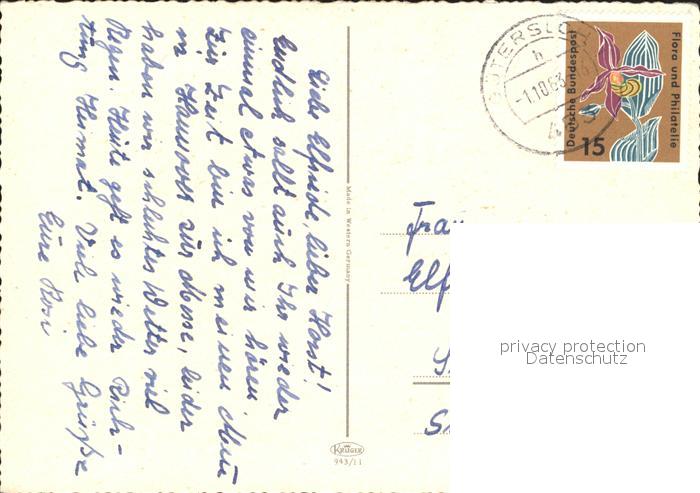 Liebe Elfriede, lieber Horst!
Endlich sollt auch Ihr wieder
einmal etwas von mir hören
Zur Zeit bin ich meinen
in Hannover zur Messe, leider
haben wir schlechtes Wetter viel
Regen. Heute geht es wieder Rich-
tung Heimat. Viele liebe Grüße
Eure Rosi
Made in Western Germany
KRÜGER
943/11
GÜTERSLOH
h
-1.10.63
Deutsche Bundespost
Flora und Philatelie
15
Elf
privacy protection
Datenschutz